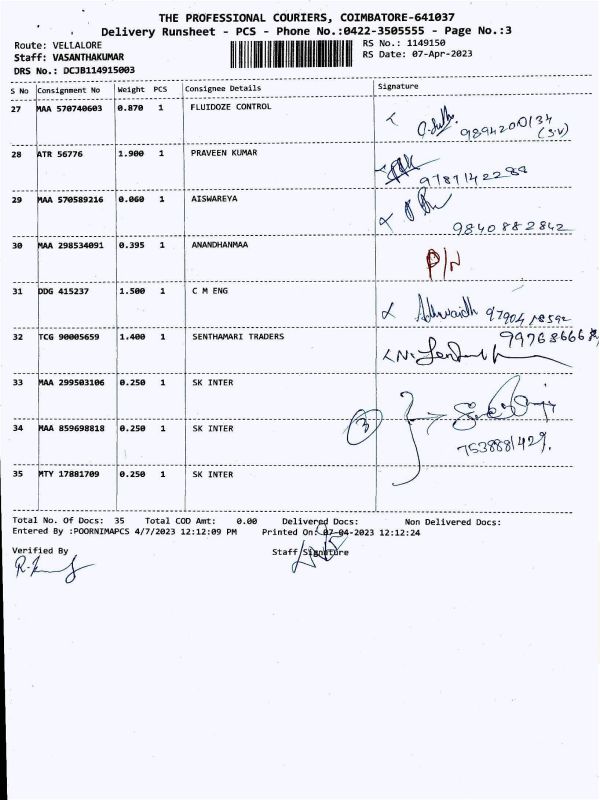 THE PROFESSIONAL COURIERS, COIMBATORE-641037
Delivery Runsheet - PCS - Phone No.:0422-3505555 - Page No.:3
Route: VELLALORE
RS No.: 1149150
Staff: VASANTHAKUMAR
RS Date: 07-Apr-2023
DRS No.: DCJB114915003
S No Consignment No Weight PCS Consignee Details Signature
27 MAA 570740603 0.870 1 FLUIDOZE CONTROL
(S.V)
28 ATR 56776 1.900 1 PRAVEEN KUMAR
9787142288
29 MAA 570589216 0.060 1 AISWAREYA
9840882842
30 MAA 298534091 0.395 1 ANANDHANMAA
P/N
31 DDG 415237 1.500 1 C M ENG
32 TCG 90005659 1.400 1 SENTHAMARI TRADERS
33 MAA 299503106 0.250 1 SK INTER
34 MAA 859698818 0.250 1 SK INTER
3
7538881429.
35 MTY 17881709 0.250 1 SK INTER
Total No. Of Docs: 35 Total COD Amt: 0.00 Delivered Docs: Non Delivered Docs:
Entered By :POORNIMAPCS 4/7/2023 12:12:09 PM Printed On: 07-04-2023 12:12:24
Verified By Staff Signature